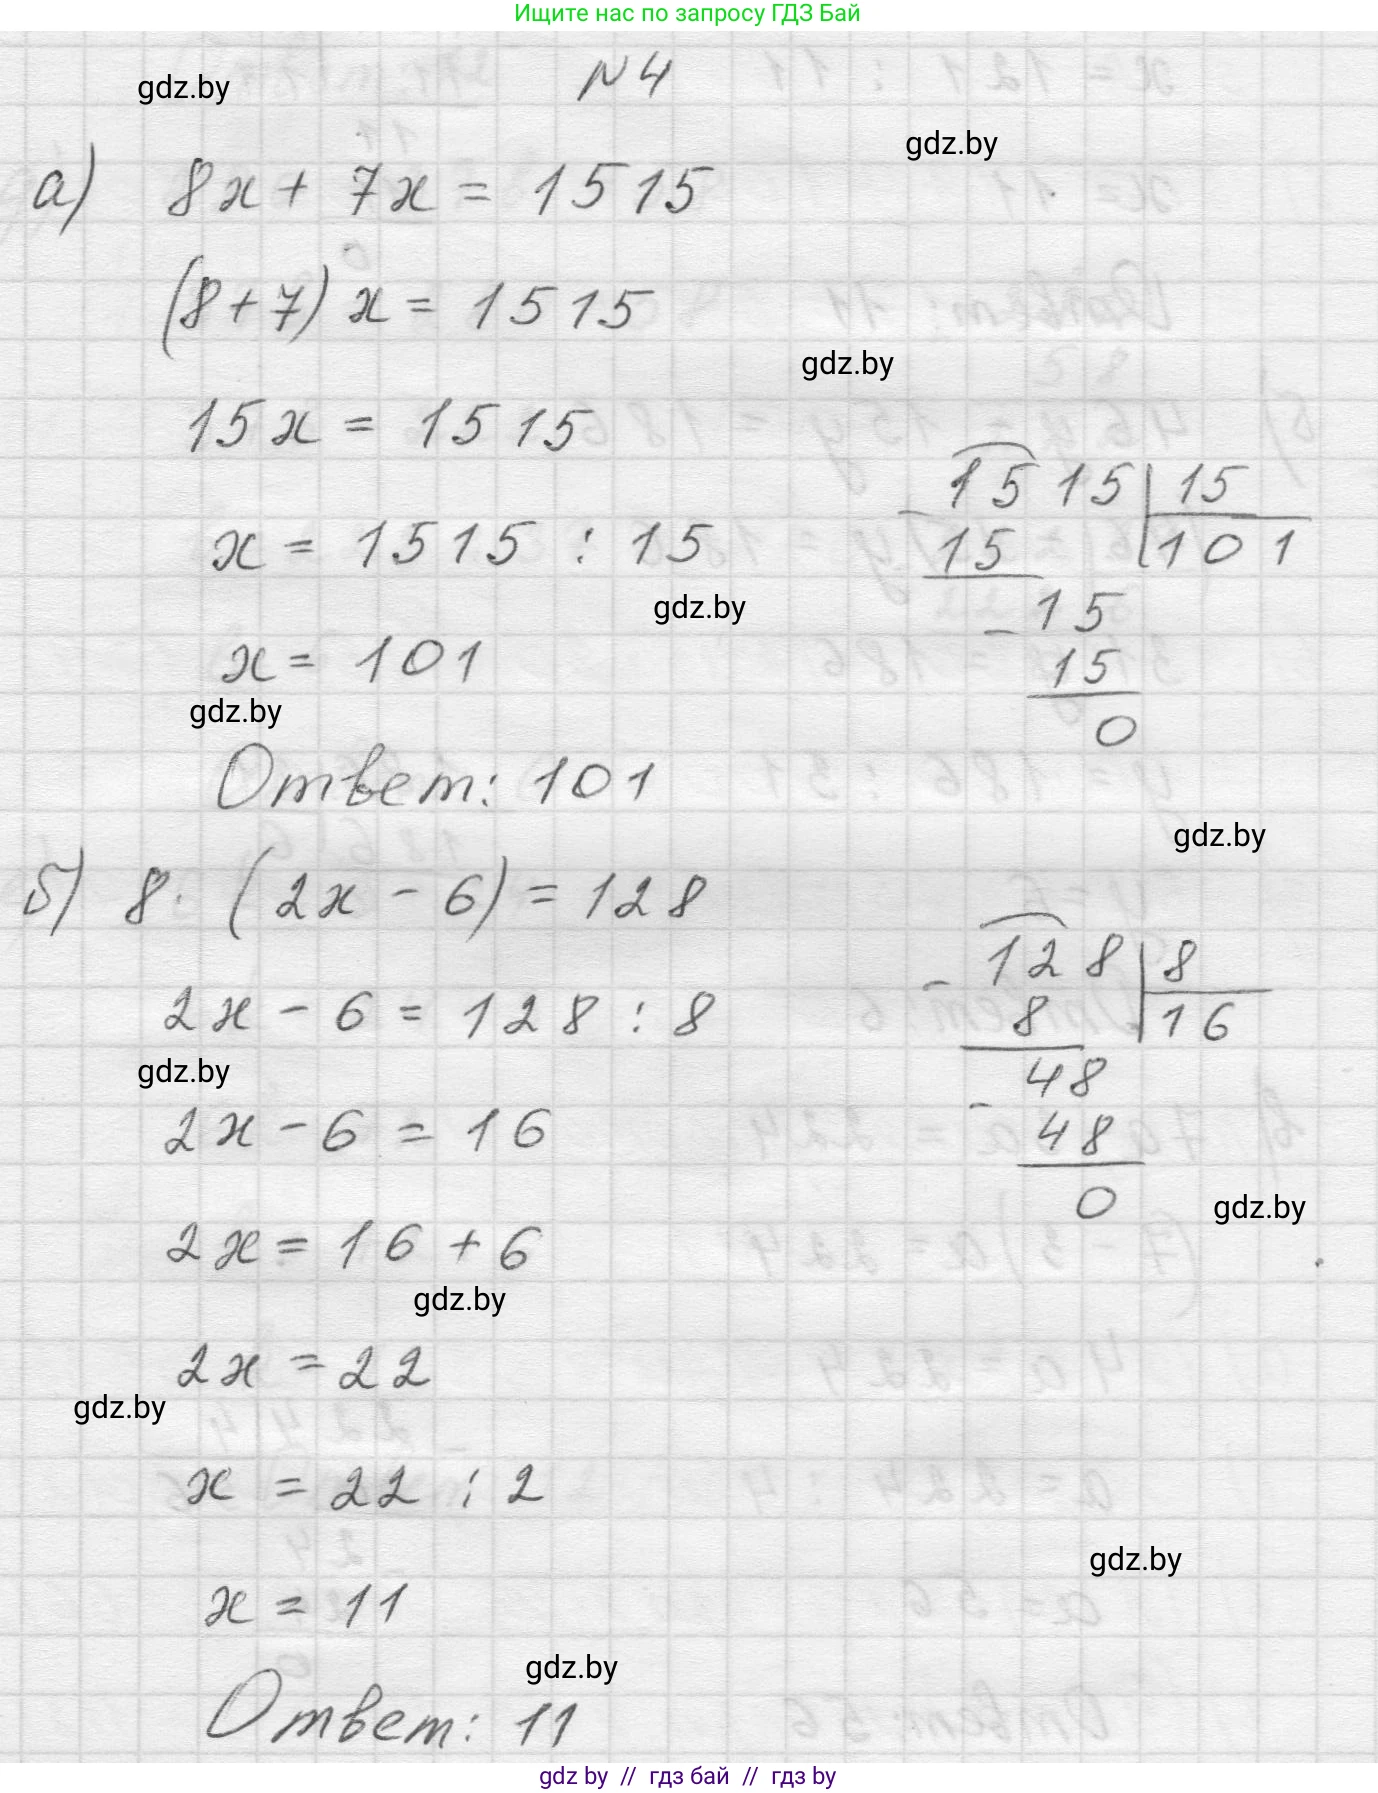 Ищите нас по запросу ГДЗ Бай
gdz.by
N 4
gdz.by
а) 8x + 7x = 1515
(8+7) x = 1515
gdz.by
15x = 1515
1515 | 15
x = 1515 : 15
- 15 | 101
gdz.by
- 15
x = 101
15
gdz.by
0
Ответ: 101
gdz.by
б) 8 · (2x - 6) = 128
128 | 8
2x - 6 = 128 : 8
- 8 | 16
gdz.by
48
2x - 6 = 16
- 48
0
gdz.by
2x = 16 + 6
gdz.by
2x = 22
gdz.by
x = 22 : 2
gdz.by
x = 11
gdz.by
Ответ: 11
gdz by // гдз бай // гдз by